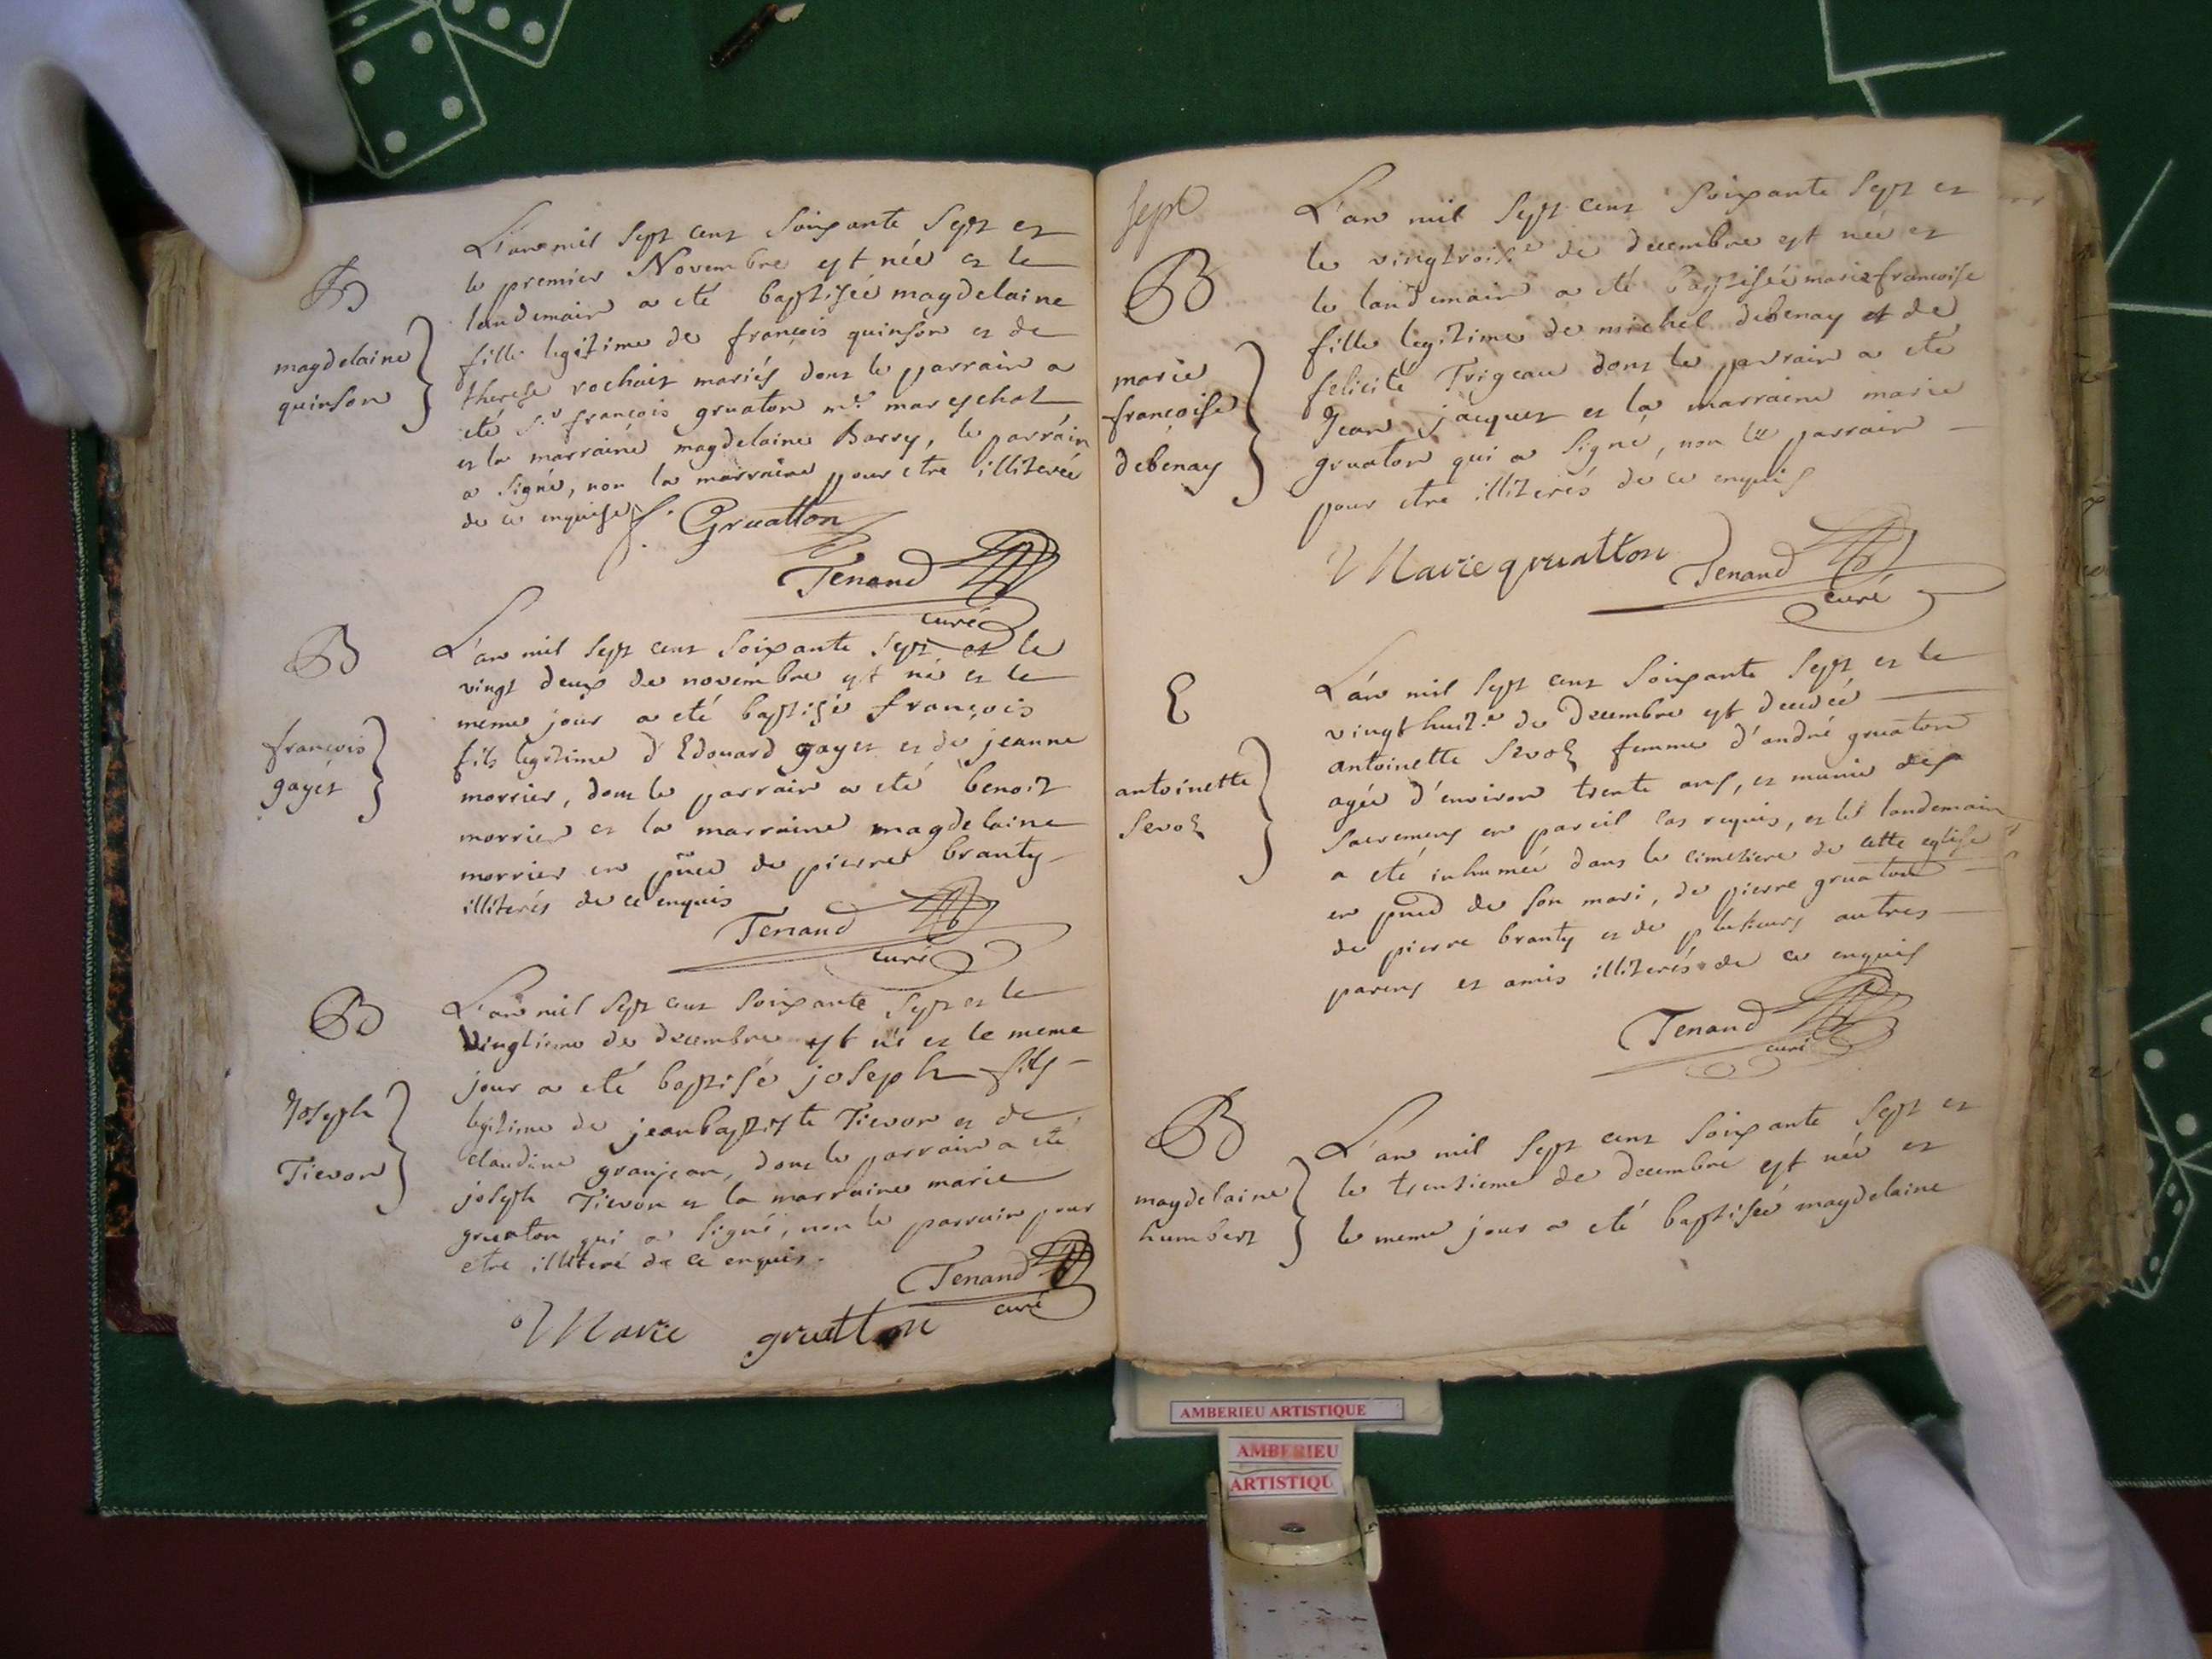 B
magdelaine
quinson
L'an mil sept cent soixante sept et
le premier Novembre est née et le
landemain a eté baptisée magdelaine
fille legitime de françois quinson et de
therese rochait mariés dont le parrain a
eté Sr françois gruaton me mareschal
et la marraine magdelaine Barry, le parrain
a signé, non la marraine pour etre illiterée
de ce enquise f. Gruatton
Tenand
curé
B
françois
gayet
L'an mil sept cent soixante sept et le
vingt deux de novembre est né et le
meme jour a eté baptisé françois
fils legitime d'Edouard gayet et de jeanne
morrier, dont le parrain a eté benoit
morrier et la marraine magdelaine
morrier en pñce de pierre branty
illiterés de ce enquis
Tenand
curé
B
Joseph
Tievon
L'an mil sept cent soixante sept et le
vingtieme de decembre est né et le meme
jour a eté baptisé joseph fils
legitime de jean baptiste Tievon et de
claudine granjean, dont le parrain a eté
joseph Tievon et la marraine marie
gruaton qui a signé, non le parrain pour
etre illiteré de ce enquis.
Tenand
curé
Marie gruatton
sept
B
marie
françoise
debenay
L'an mil sept cent soixante sept et
le vingtroise de decembre est née et
le landemain a eté baptisée marie francoise
fille legitime de michel debenay et de
felicité Trigeau dont le parrain a eté
Jean jacquet et la marraine marie
gruaton qui a signé, non le parrain
pour etre illiterés de ce enquis
Marie gruatton
Tenand
curé
E
antoinette
Sevoz
L'an mil sept cent soixante sept et le
vingt huite de Decembre est decedée
antoinette Sevoz femme d'andré gruaton
agée d'environ trente ans, et munie des
sacremens en pareil cas requis, et le landemain
a eté inhumée dans le cimetiere de cette eglise
en pñce de son mari, de pierre gruaton
de pierre branty et de plusieurs autres
parens et amis illiterés de ce enquis
Tenand
curé
B
magdelaine
humbert
L'an mil sept cent soixante sept et
le trentieme de decembre est née et
le meme jour a eté baptisée magdelaine
AMBERIEU ARTISTIQUE
AMBERIEU
ARTISTIQU